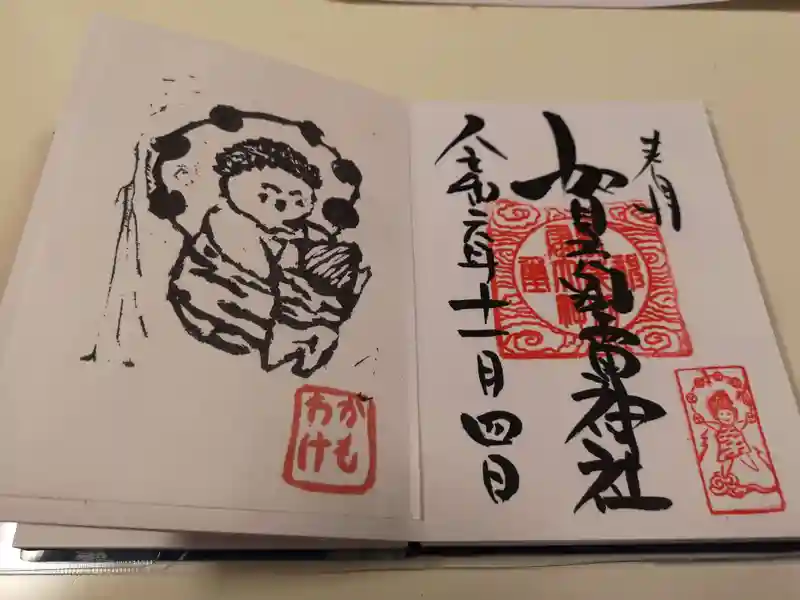 賀茂別雷神社
令和元年十一月四日
かも
わけ